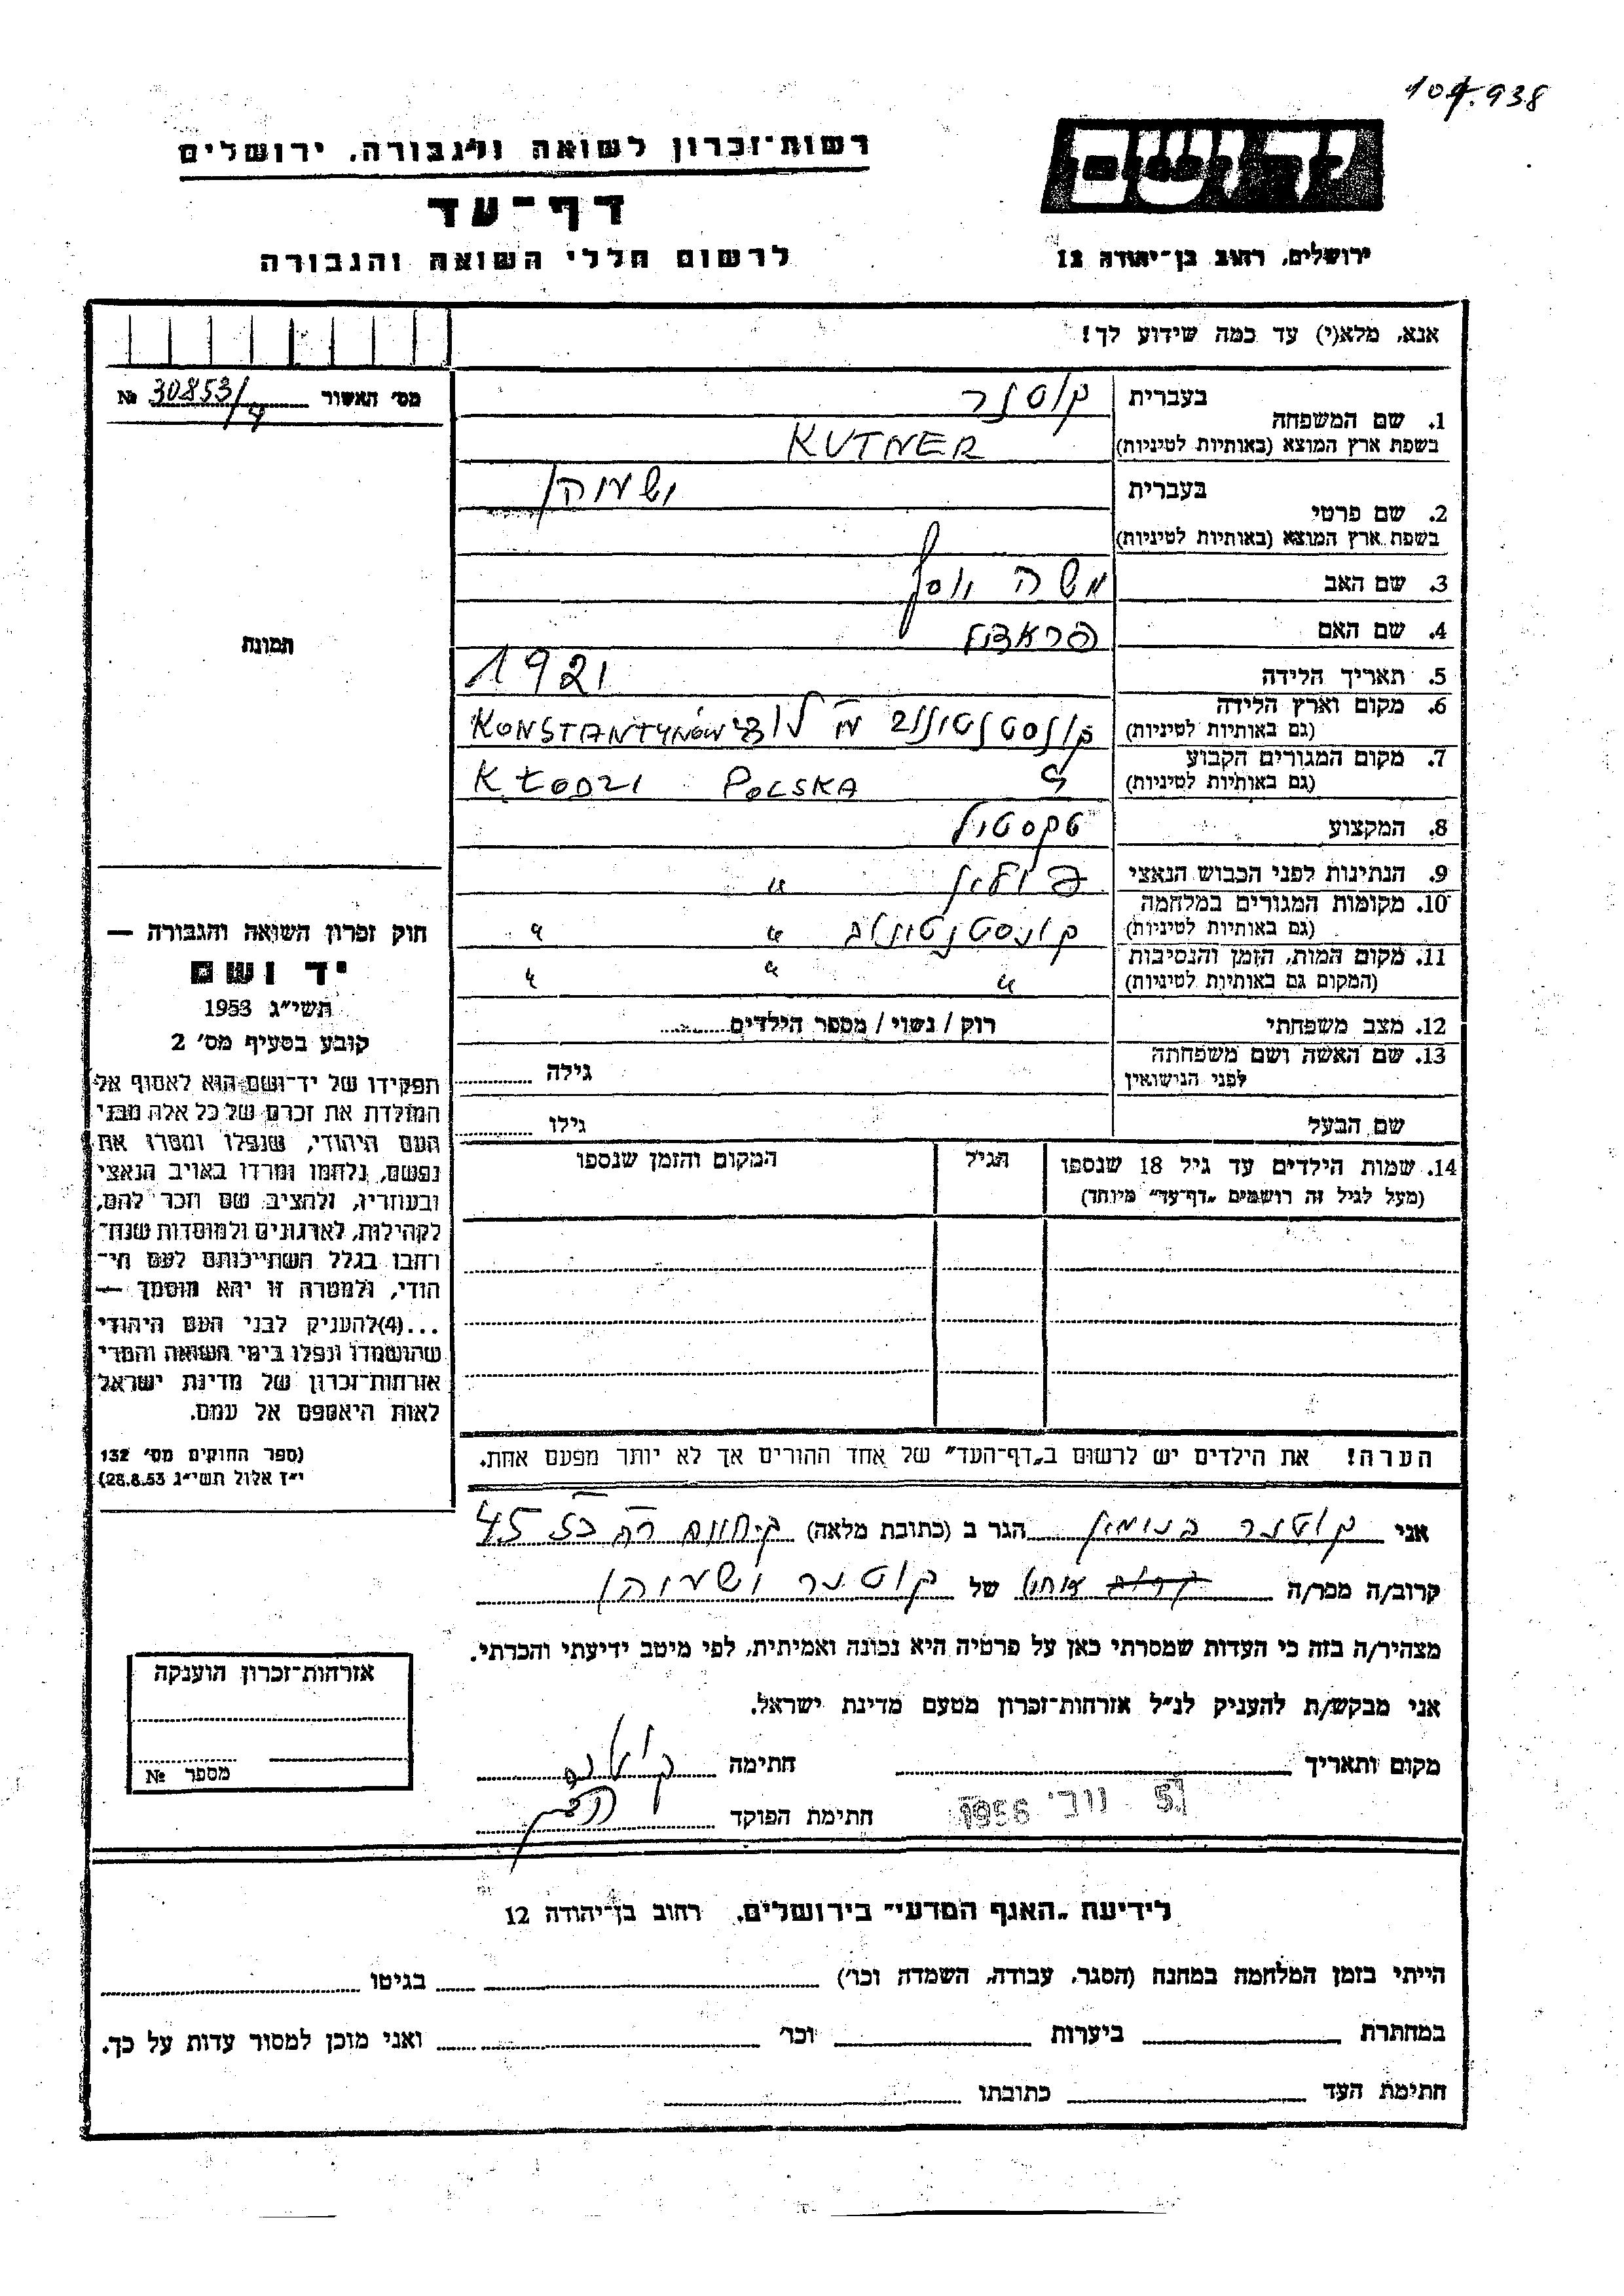 104.938
רשות־זכרון לשואה ולגבורה, ירושלים
יד ושם
דף־עד
לרשום חללי השואה והגבורה
ירושלים, רחוב בן־יהודה 12
אנא, מלא(י) עד כמה שידוע לך!
מס׳ האשור 30853/4 №
תמונת
1. שם המשפחה
בעברית קוטנר
בשפת ארץ המוצא (באותיות לטיניות) KUTNER
2. שם פרטי
בעברית ישעיהו
בשפת ארץ המוצא (באותיות לטיניות)
3. שם האב משה יוסף
4. שם האם
5. תאריך הלידה 1921
6. מקום וארץ הלידה (גם באותיות לטיניות) KONSTANTYNÓW
7. מקום המגורים הקבוע (גם באותיות לטיניות) K ŁODZI POLSKA
8. המקצוע טקסטיל
9. הנתינות לפני הכבוש הנאצי פולין "
10. מקומות המגורים במלחמה (גם באותיות לטיניות) " "
11. מקום המות, הזמן והנסיבות (המקום גם באותיות לטיניות) " " "
12. מצב משפחתי רוק / נשוי / מספר הילדים
13. שם האשה ושם משפחתה לפני הנישואין גילה
שם הבעל גילו
14. שמות הילדים עד גיל 18 שנספו הגיל המקום והזמן שנספו
(מעל לגיל זה רושמים „דף־עד" מיוחד)
הערה! את הילדים יש לרשום ב„דף־העד" של אחד ההורים אך לא יותר מפעם אחת.
חוק זכרון השואה והגבורה —
יד ושם
תשי״ג 1953
קובע בסעיף מס׳ 2
תפקידו של יד־ושם הוא לאסוף אל
המולדת את זכרם של כל אלה מבני
העם היהודי, שנפלו ומסרו את
נפשם, נלחמו ומרדו באויב הנאצי
ובעוזריו, ולהציב שם וזכר להם,
לקהילות, לארגונים ולמוסדות שנח־
רחבו בגלל השתייכותם לעם הי־
הודי, ולמטרה זו יהא מוסמך —
...(4)להעניק לבני העם היהודי
שהושמדו ונפלו בימי השואה והמרי
אזרחות־זכרון של מדינת ישראל
לאות היאספם אל עמם.
(ספר החוקים מס׳ 132
י״ז אלול תשי״ג 28.8.53)
אני קוטנר בנימין הגר ב (כתובת מלאה) 45
קרוב/ה מכר/ה של קוטנר ישעיהו
מצהיר/ה בזה כי העדות שמסרתי כאן על פרטיה היא נכונה ואמיתית, לפי מיטב ידיעתי והכרתי.
אני מבקש/ת להעניק לנ״ל אזרחות־זכרון מטעם מדינת ישראל.
מקום ותאריך חתימה
1956
חתימת הפוקד
אזרחות־זכרון הוענקה
מספר №
לידיעת „האגף המדעי" בירושלים, רחוב בן־יהודה 12
הייתי בזמן המלחמה במחנה (הסגר, עבודה, השמדה וכו׳) בגיטו
במחתרת ביערות וכו׳ ואני מוכן למסור עדות על כך.
חתימת העד כתובתו